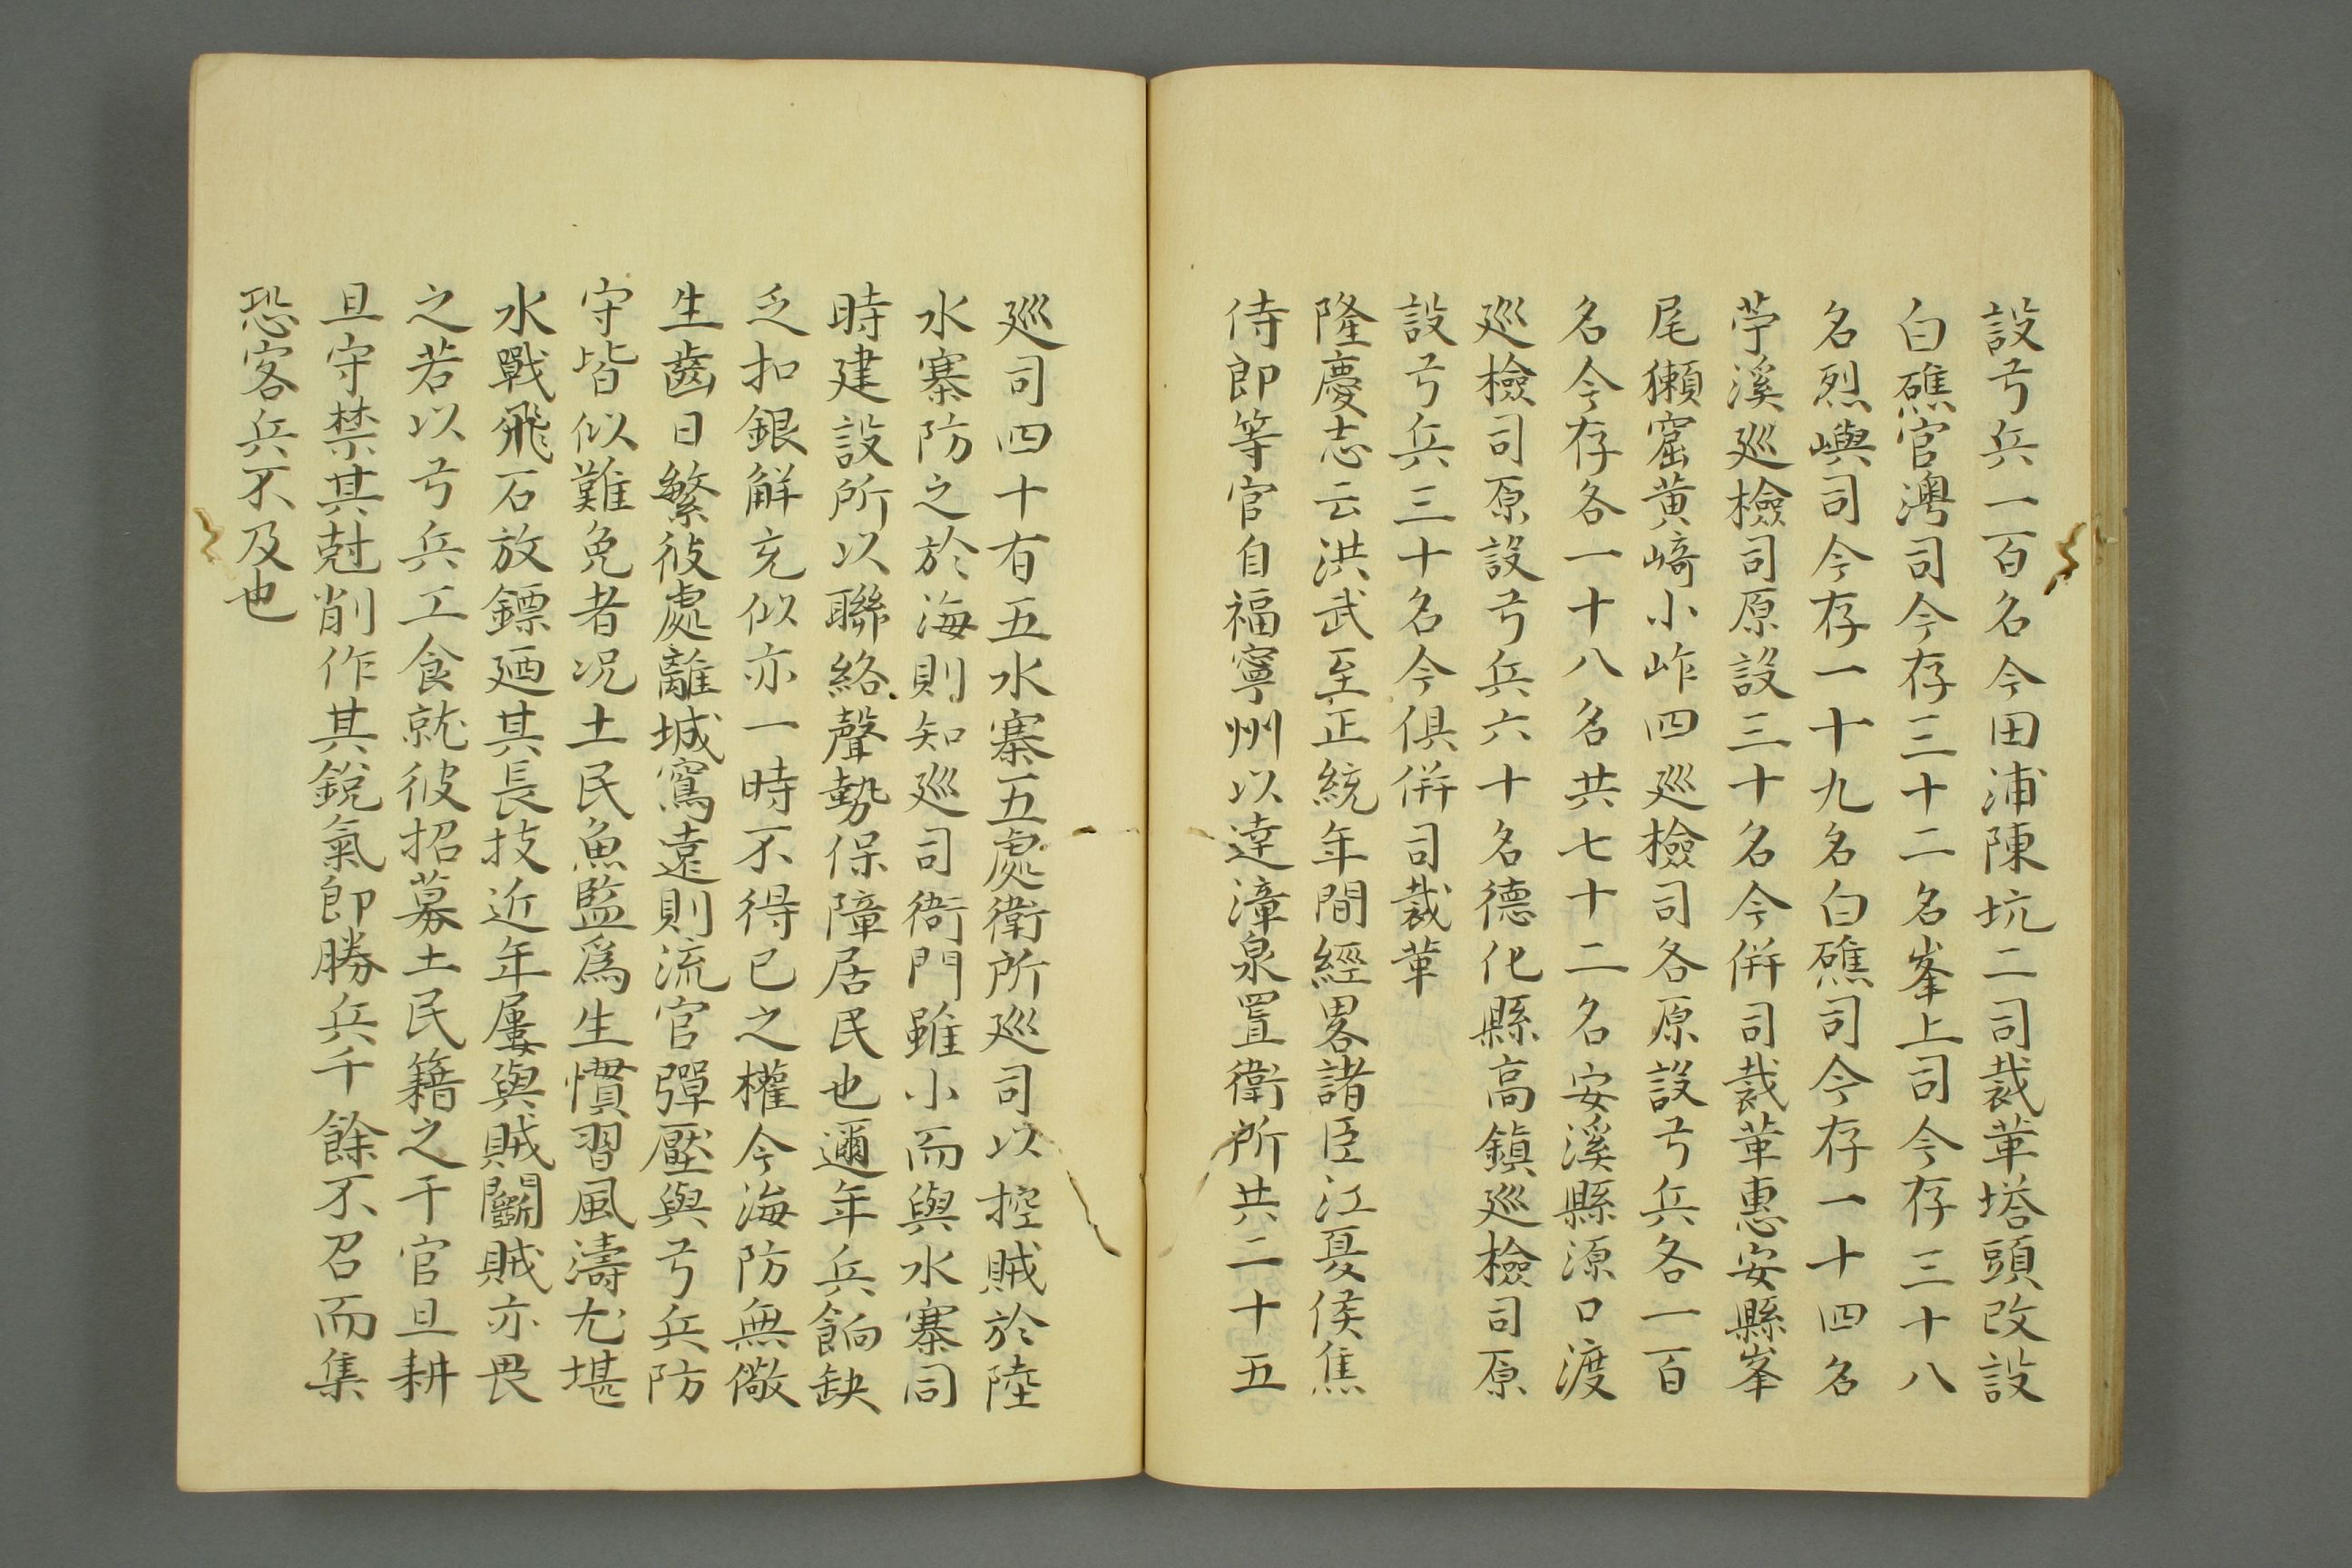 設弓兵一百名今田浦陳坑二司裁革塔頭改設
白礁官澳司今存三十二名峯上司今存三十八
名烈嶼司今存一十九名白礁司今存一十四名
苧溪廵檢司原設三十名今併司裁革惠安縣峯
尾獺窟黃崎小岞四廵檢司各原設弓兵各一百
名今存各一十八名共七十二名安溪縣源口渡
廵檢司原設弓兵六十名德化縣高鎮廵檢司原
設弓兵三十名今俱併司裁革
隆慶志云洪武至正統年間經畧諸臣江夏侯焦
侍郎等官自福寧州以達漳泉置衛所共二十五
廵司四十有五水寨五處衛所廵司以控賊於陸
水寨防之於海則知廵司衙門雖小而與水寨同
時建設所以聯絡聲勢保障居民也邇年兵餉缺
乏扣銀解充似亦一時不得已之權今海防無儆
生齒日繁彼處離城窵遠則流官彈壓與弓兵防
守皆似難免者况土民魚監爲生慣習風濤尤堪
水戰飛石放鏢廼其長技近年屢與賊鬬賊亦畏
之若以弓兵工食就彼招募土民籍之干官且耕
且守禁其尅削作其銳氣即勝兵千餘不召而集
恐客兵不及也